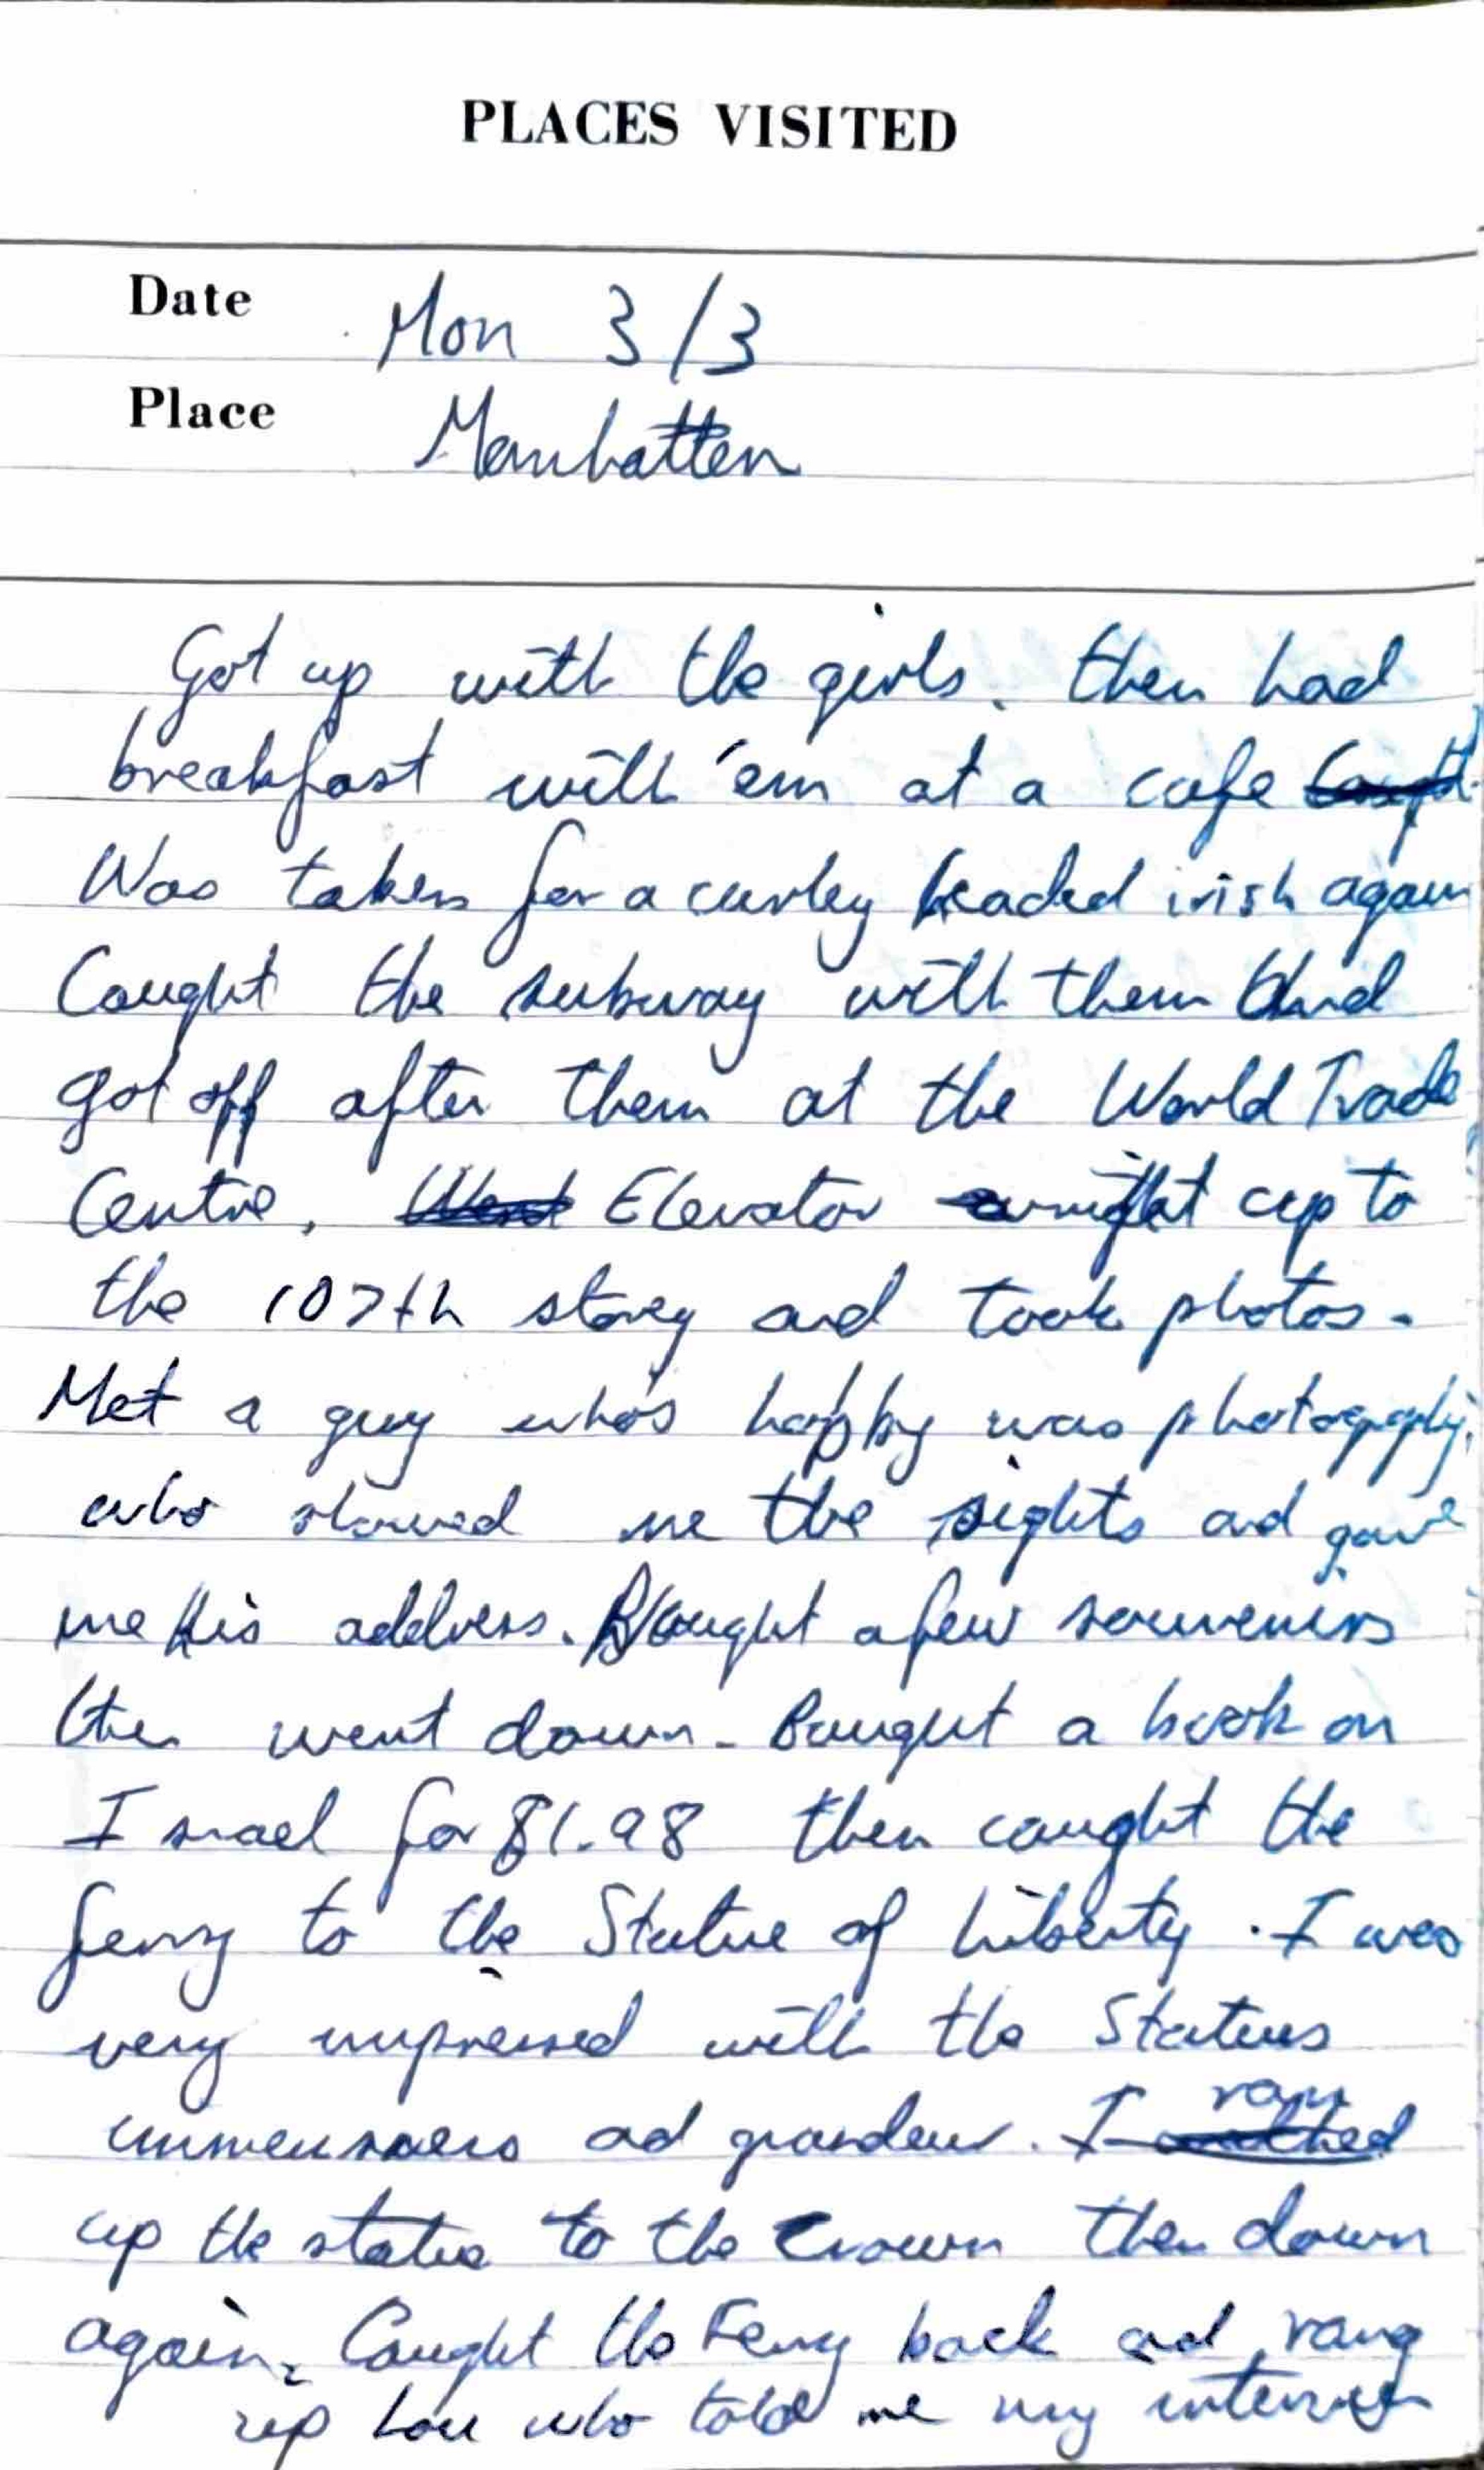 PLACES VISITED
Date Mon 3/3
Place Manhatten
Got up with the girls. then had
breakfast with 'em at a cafe
Was taken for a curley headed irish again
Caught the subway with them and
got off after them at the World Trade
Centre, Elevator right up to
the 107th storey and took photos.
Met a guy who's hobby was photography.
who showed me the sights and gave
me his address. Bought a few souvenirs
then went down. Bought a book on
Israel for $1.98 then caught the
ferry to the Statue of Liberty. I was
very impressed with the Statues
immensness ad grandeur. I ran
up the statue to the Crown then down
again. Caught the Ferry back and rang
up Lou who told me my interview